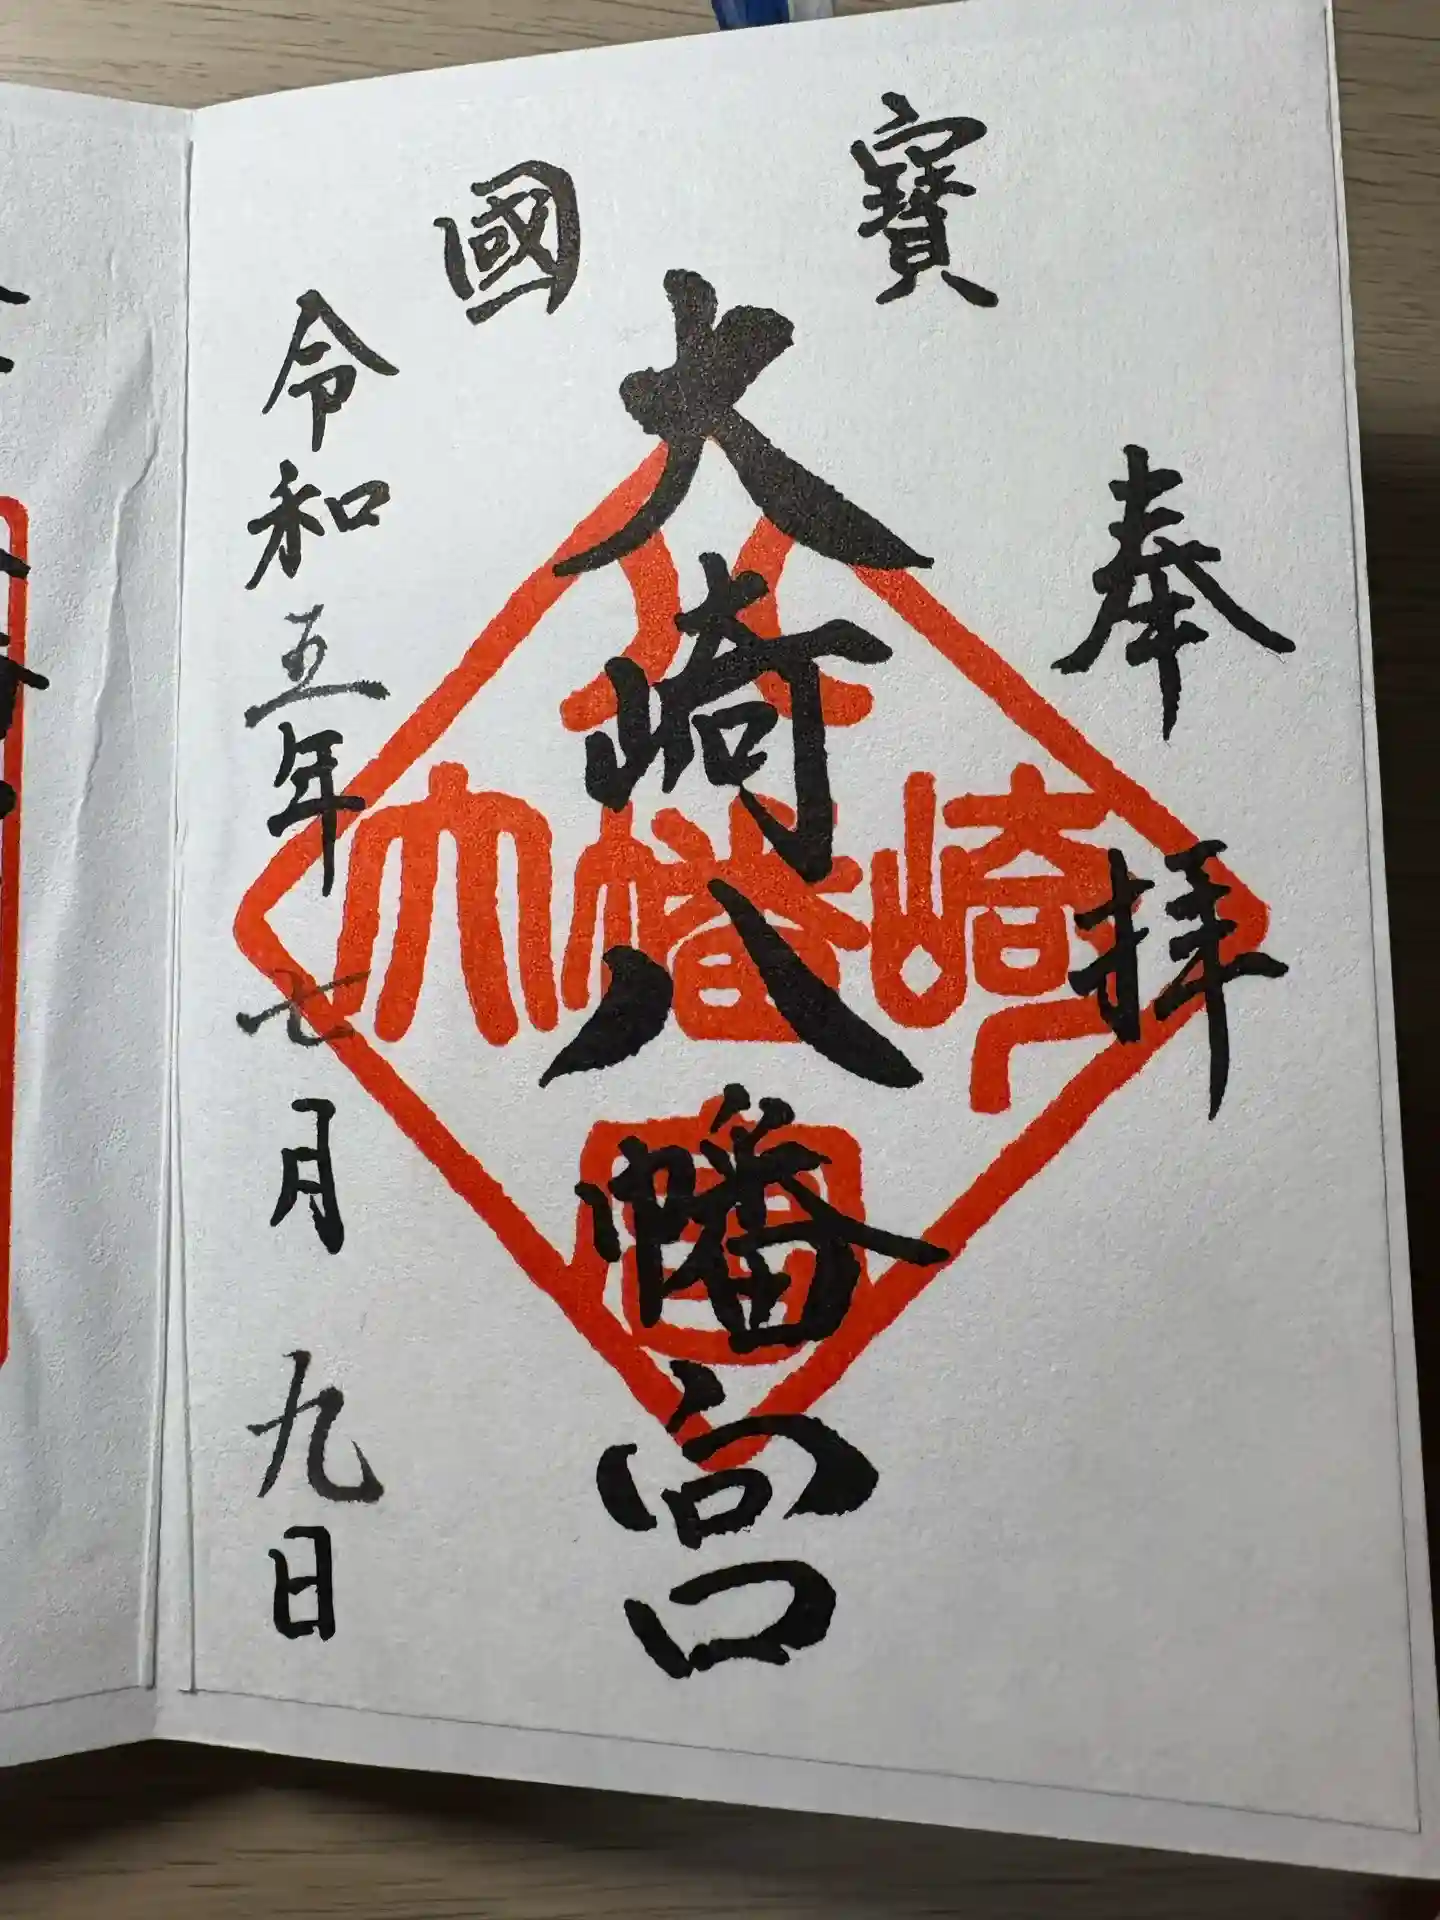 國寶
奉拝
大崎八幡宮
令和五年七月九日
大崎八幡宮